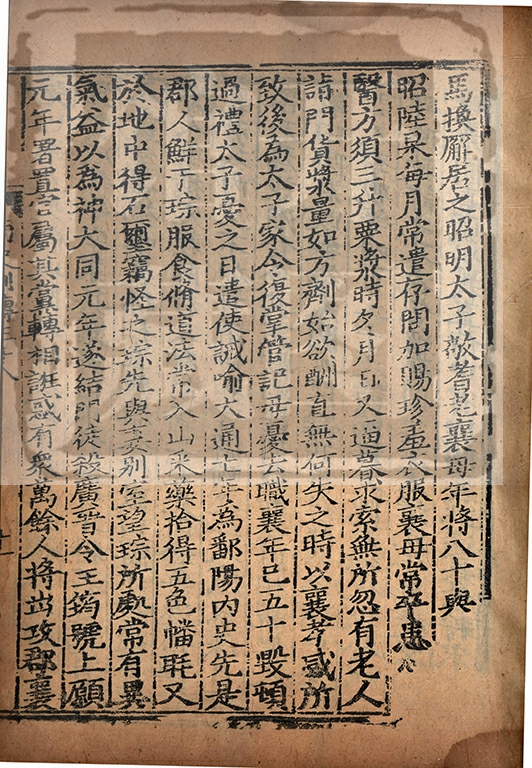 馬換廨居之昭明太子敬耆老襄母年將八十與
昭陸杲每月常遣存問加賜珍羞衣服襄母常卒患
醫方須三升粟漿時冬月日又逼暮求索無所忽有老人
詣門貨漿量如方劑始欲酬直無何失之時以襄孝感所
致後為太子家令復掌管記母憂去職襄年已五十毀頓
過禮太子憂之日遣使誡喻大通七年為鄱陽内史先是
郡人鮮于琮服食脩道法常入山采藥拾得五色幡毦又
於地中得石璽竊怪之琮先與妻別室望琮所處常有異
氣益以為神大同元年遂結門徒殺廣晉令王筠號上願
元年署置官屬其黨轉相誑惑有衆萬餘人將出攻郡襄